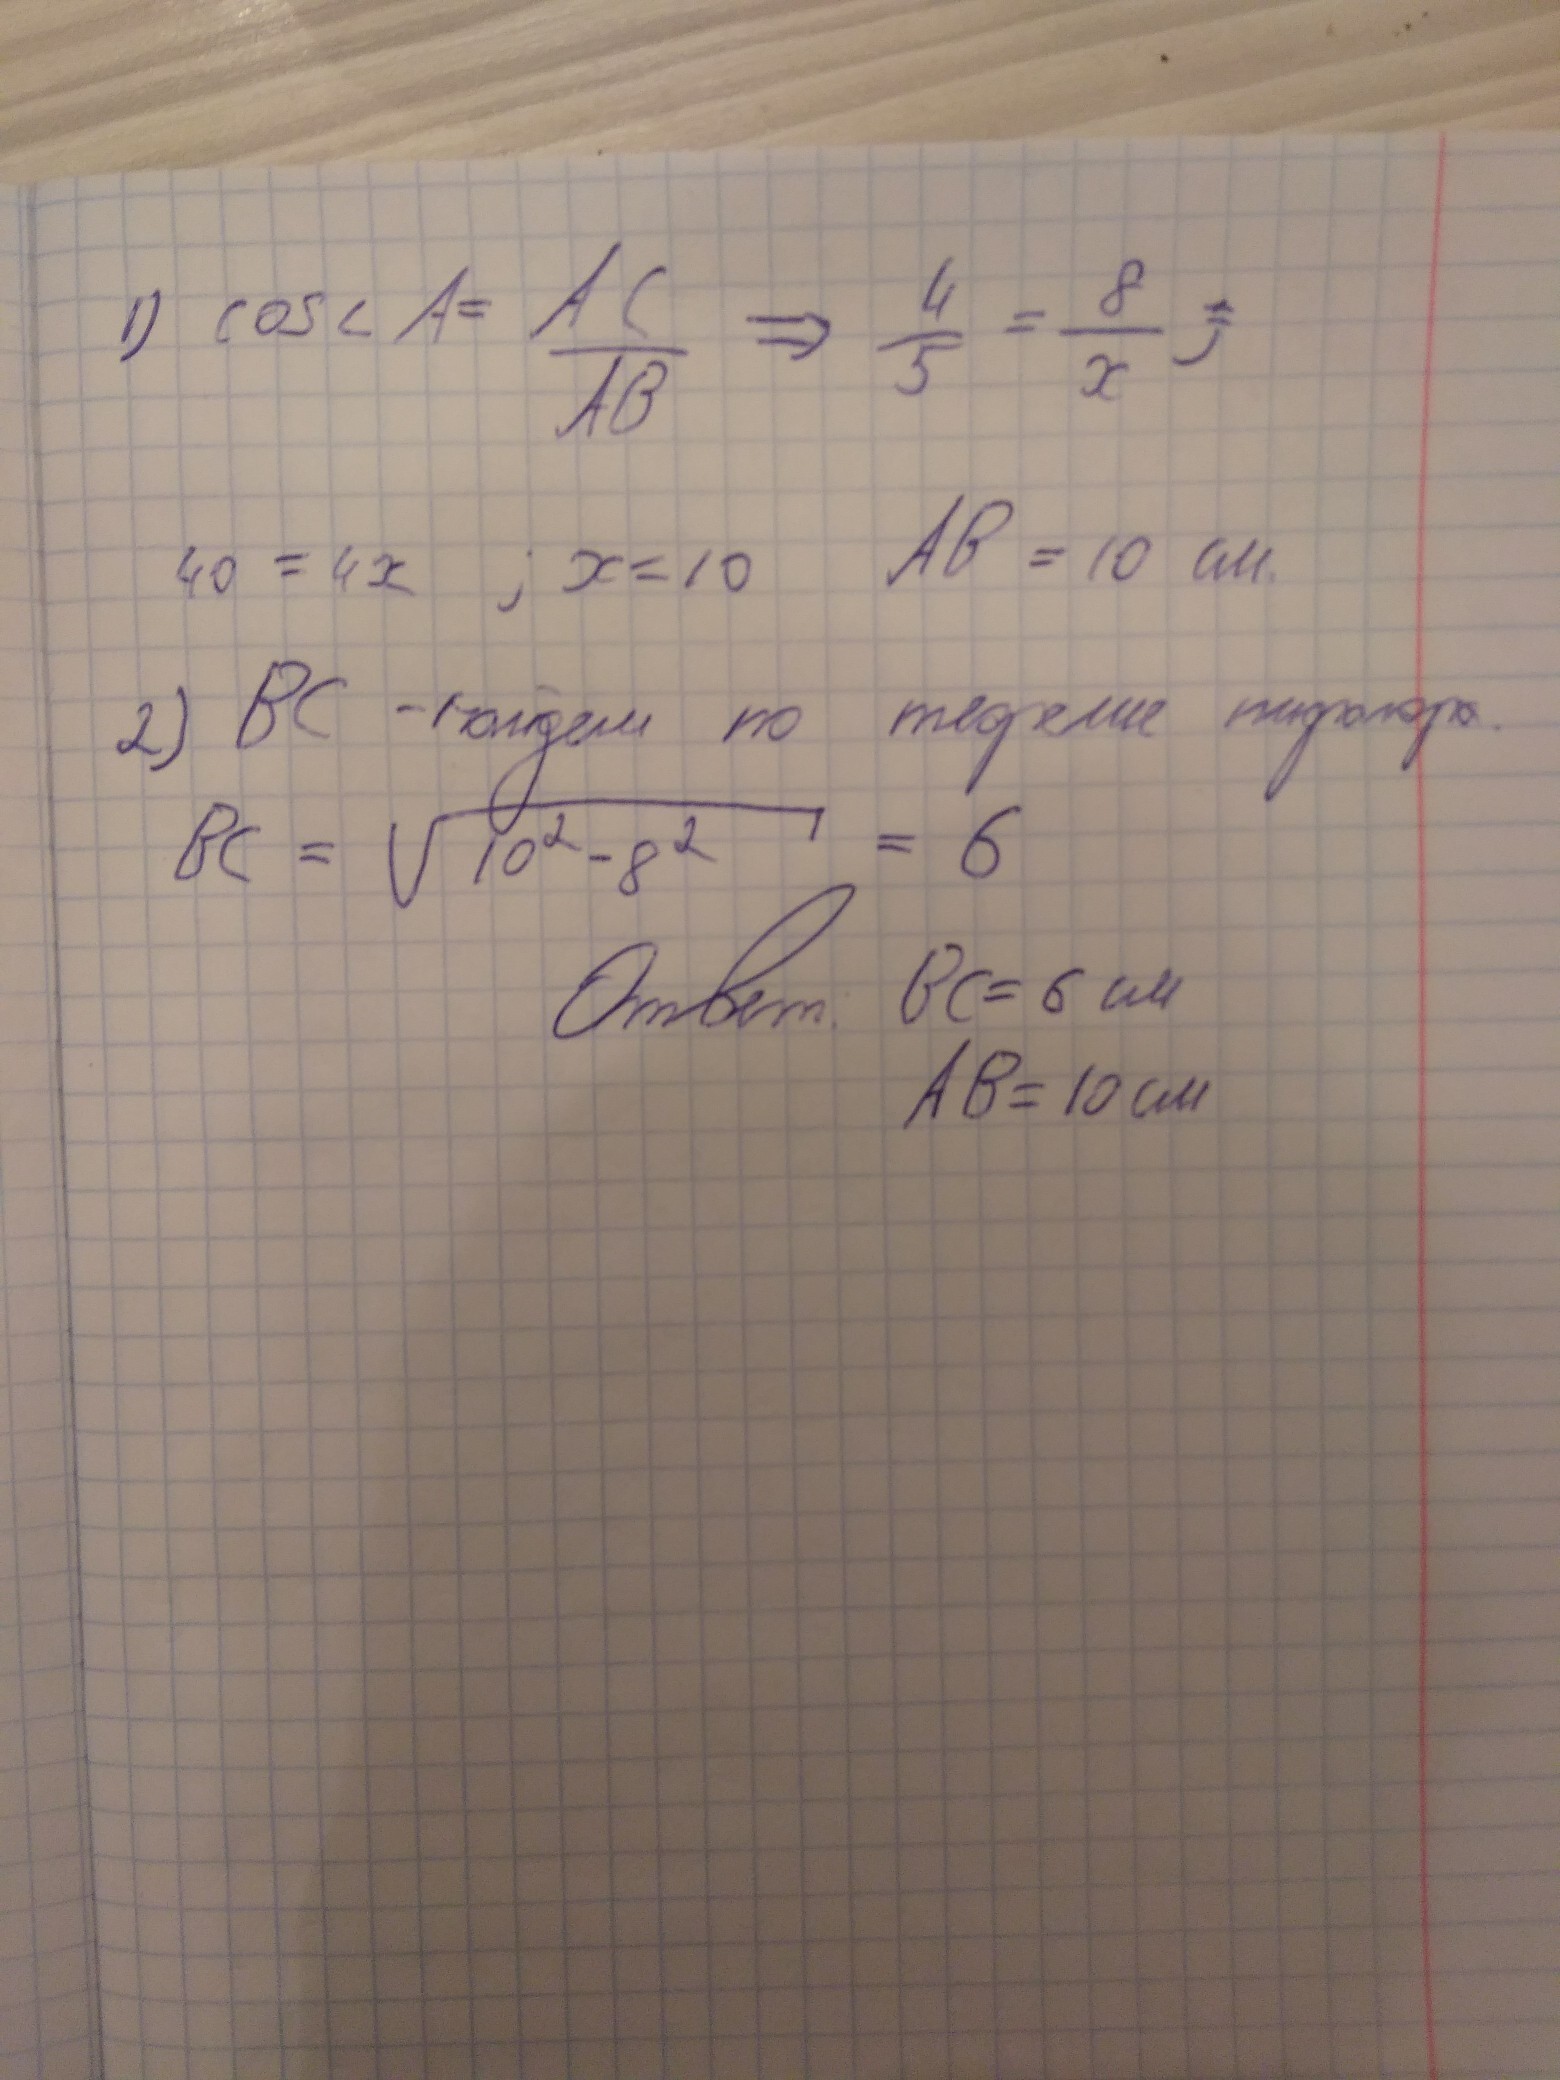 1) cos∠A = AC/AB ⇒ 4/5 = 8/x ;
40 = 4x ; x = 10 AB = 10 см.
2) BC - найдем по теореме пифагора.
BC = √(10² - 8²) = 6
Ответ: BC = 6 см
AB = 10 см